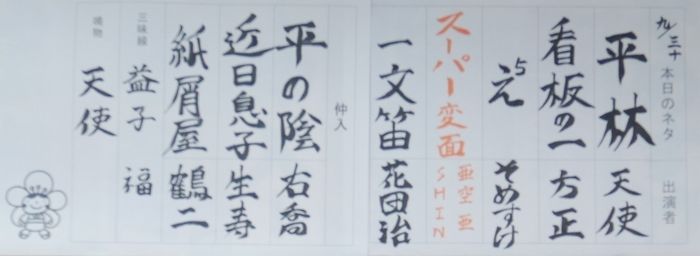 九/三十 本日のネタ 出演者
平林 天使
看板の一 方正
そめすけ
スーパー変面 亜空亜 SHIN
一文笛 花団治
仲入
平の陰 右喬
近日息子 生寿
紙屑屋 鶴二
三味線 益子 福
鳴物 天使